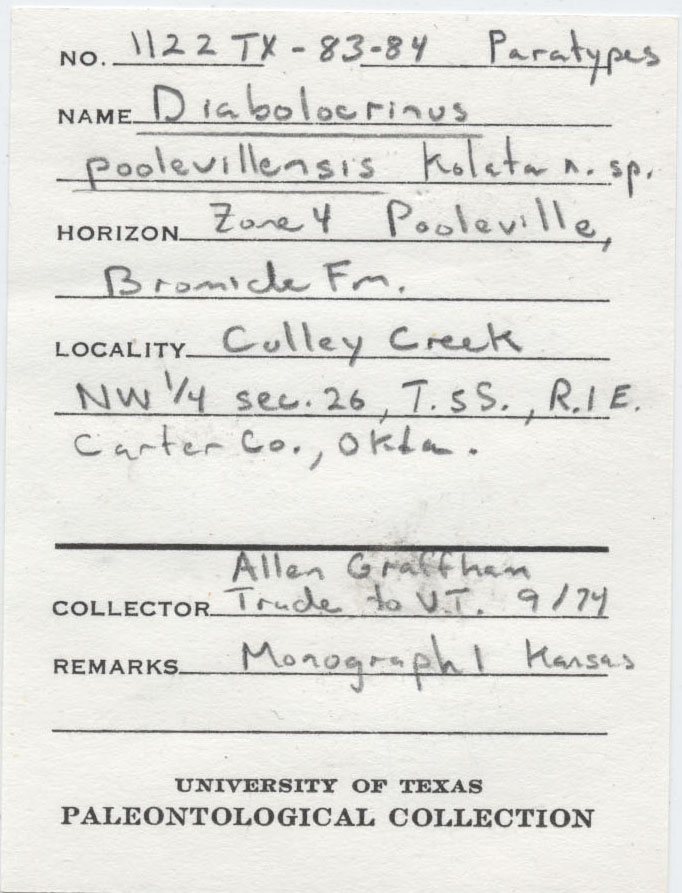 NO. 1122 TX - 83-84 Paratypes
NAME Diabolocrinus
poolevillensis Kolata n. sp.
HORIZON Zone 4 Pooleville,
Bromide Fm.
LOCALITY Culley Creek
NW 1/4 sec. 26, T. 5S., R. 1 E.
Carter Co., Okla.
Allen Graffham
COLLECTOR Trade to U.T. 9/74
REMARKS Monograph 1 Kansas
UNIVERSITY OF TEXAS
PALEONTOLOGICAL COLLECTION